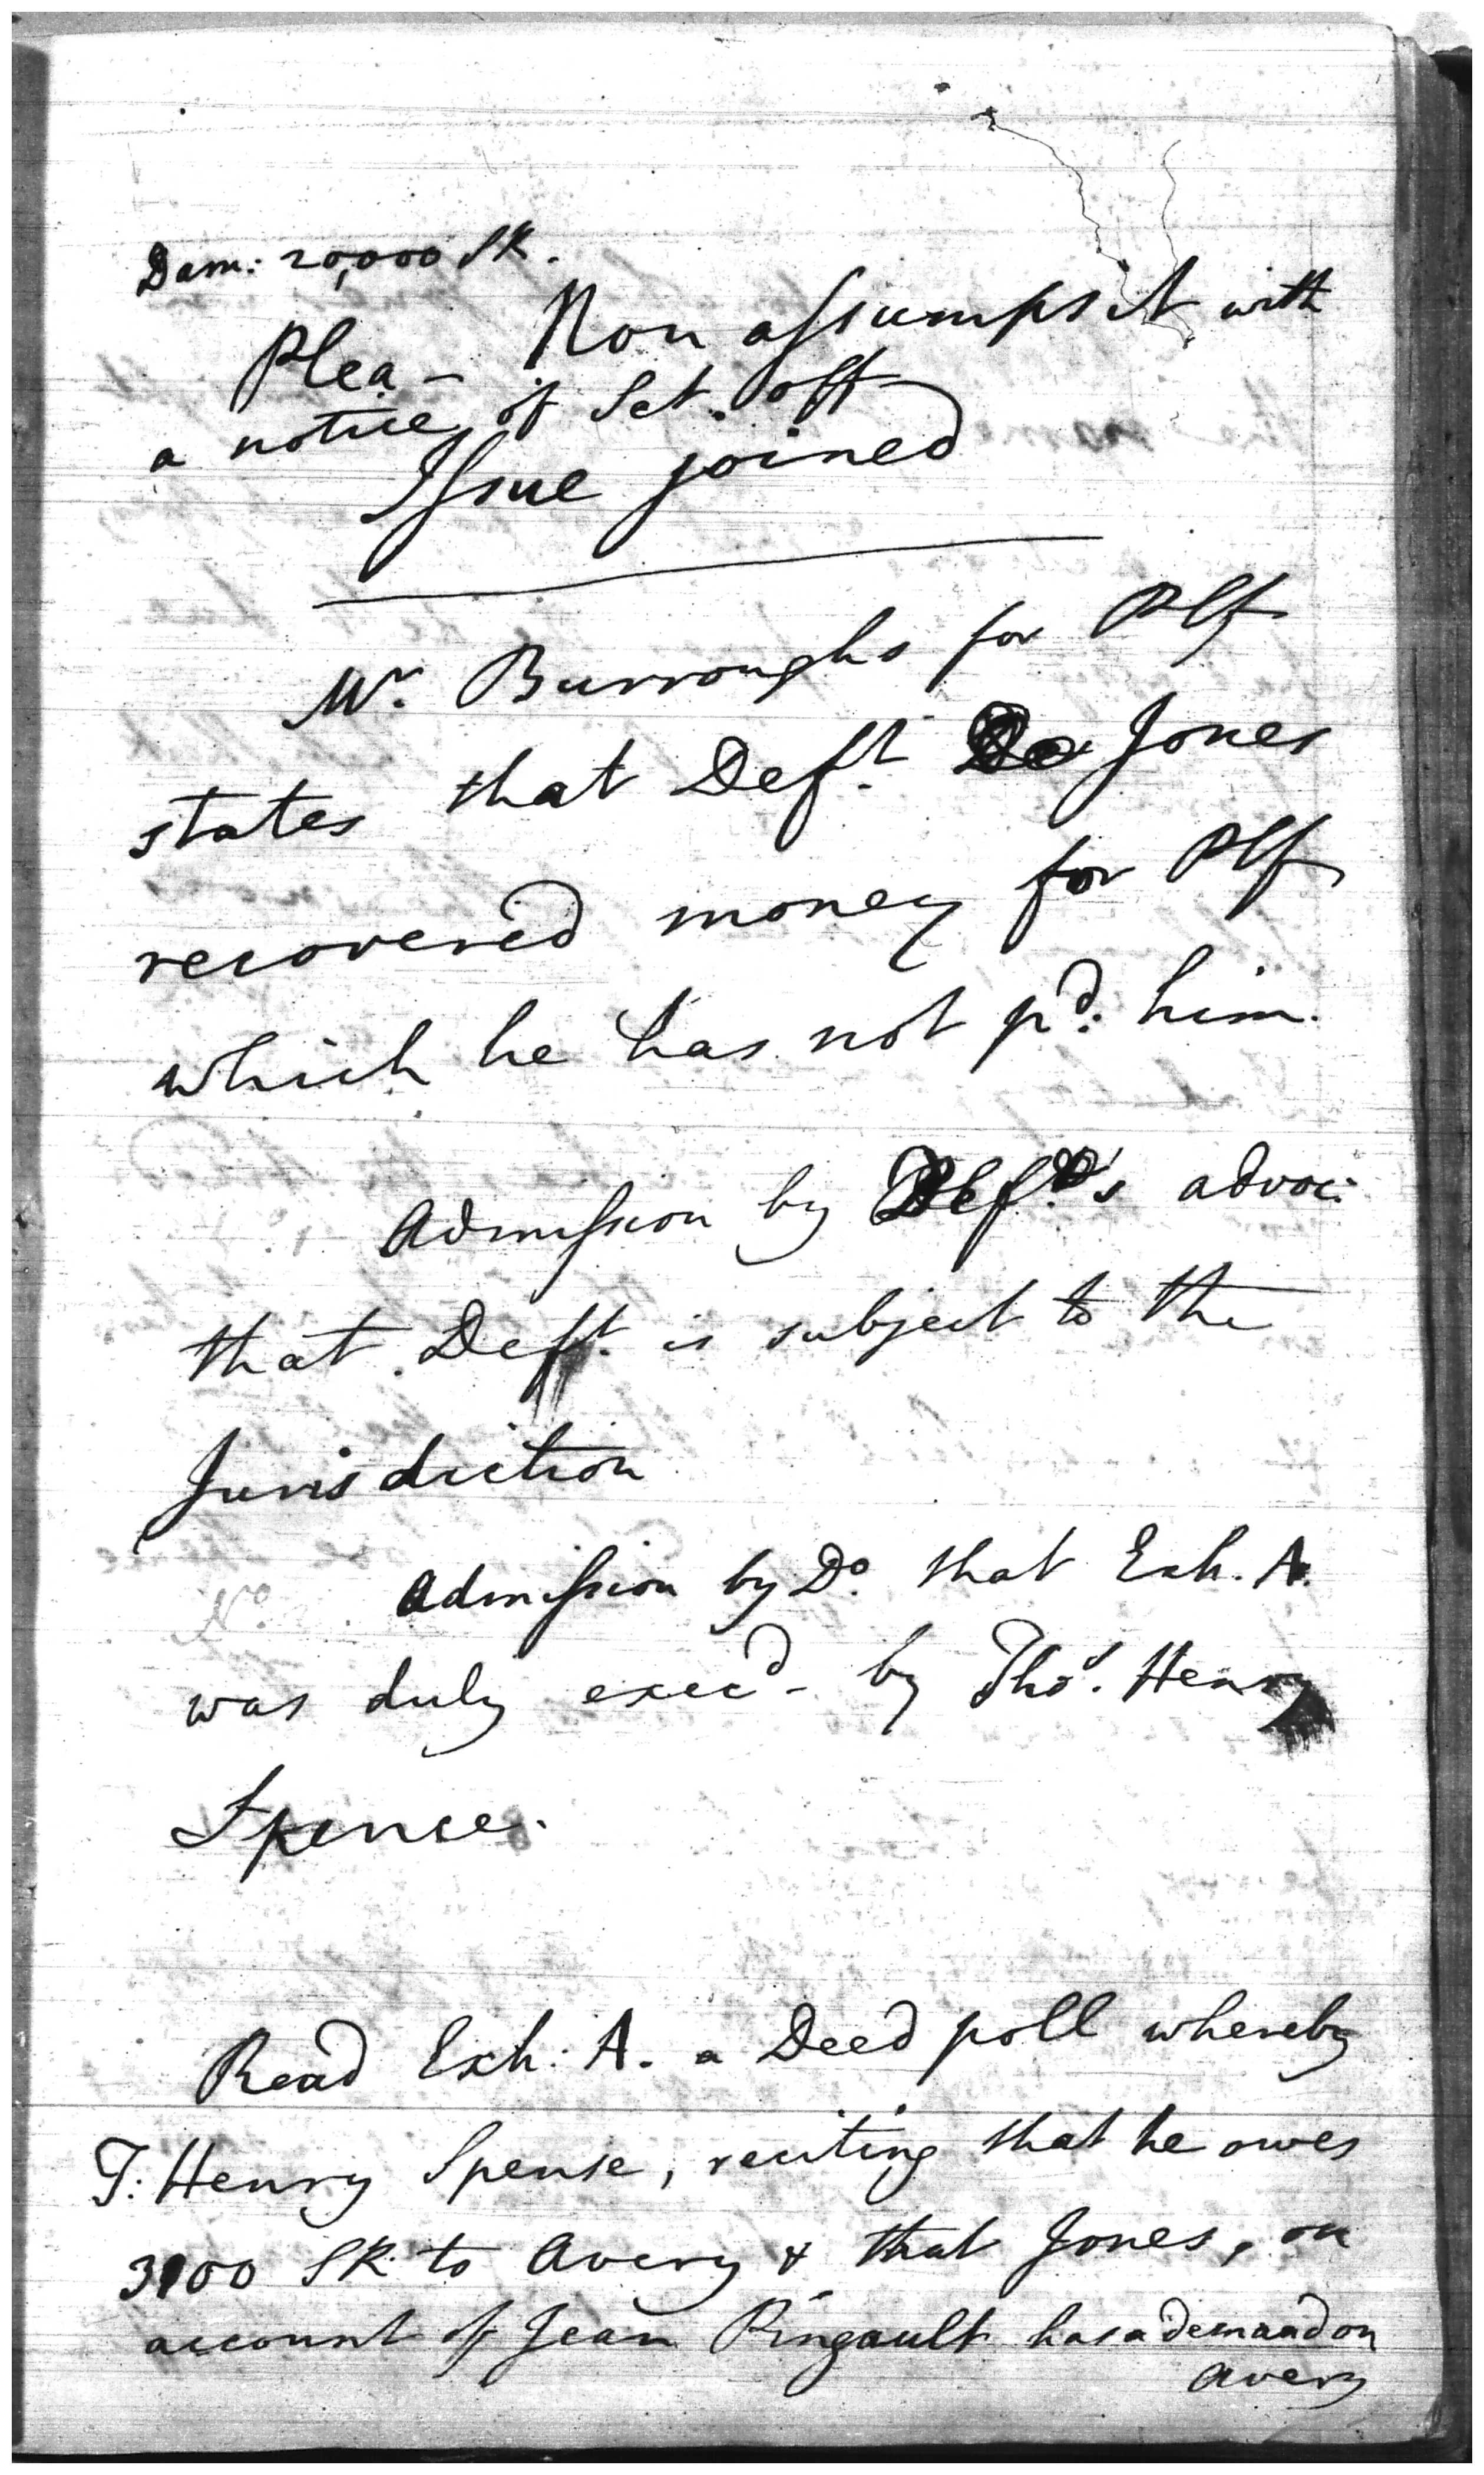 Dam: 20,000 SR.
Plea - Non assumpsit with
a notice of Set. off
Issue joined
Mr. Burroughs for Plf
states that Deft. Jones
recovered money for Plf
which he has not pd. him.
Admission by Deft's advoc:
that Deft. is subject to the
Jurisdiction
Admission by Do. that Exh. A.
was duly execd - by Thos. Henry
Spense.
Read Exh: A. a Deed poll whereby
T: Henry Spense, reciting that he owes
3100 SR. to Avery & that Jones, on
account of Jean Pingault has a demand on
Avery